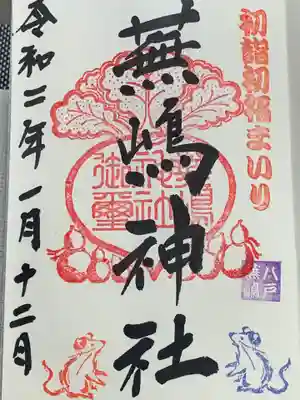 初詣初福まいり
蕪嶋神社
蕪嶋神社御璽
八戸蕪嶋
令和二年一月十二日